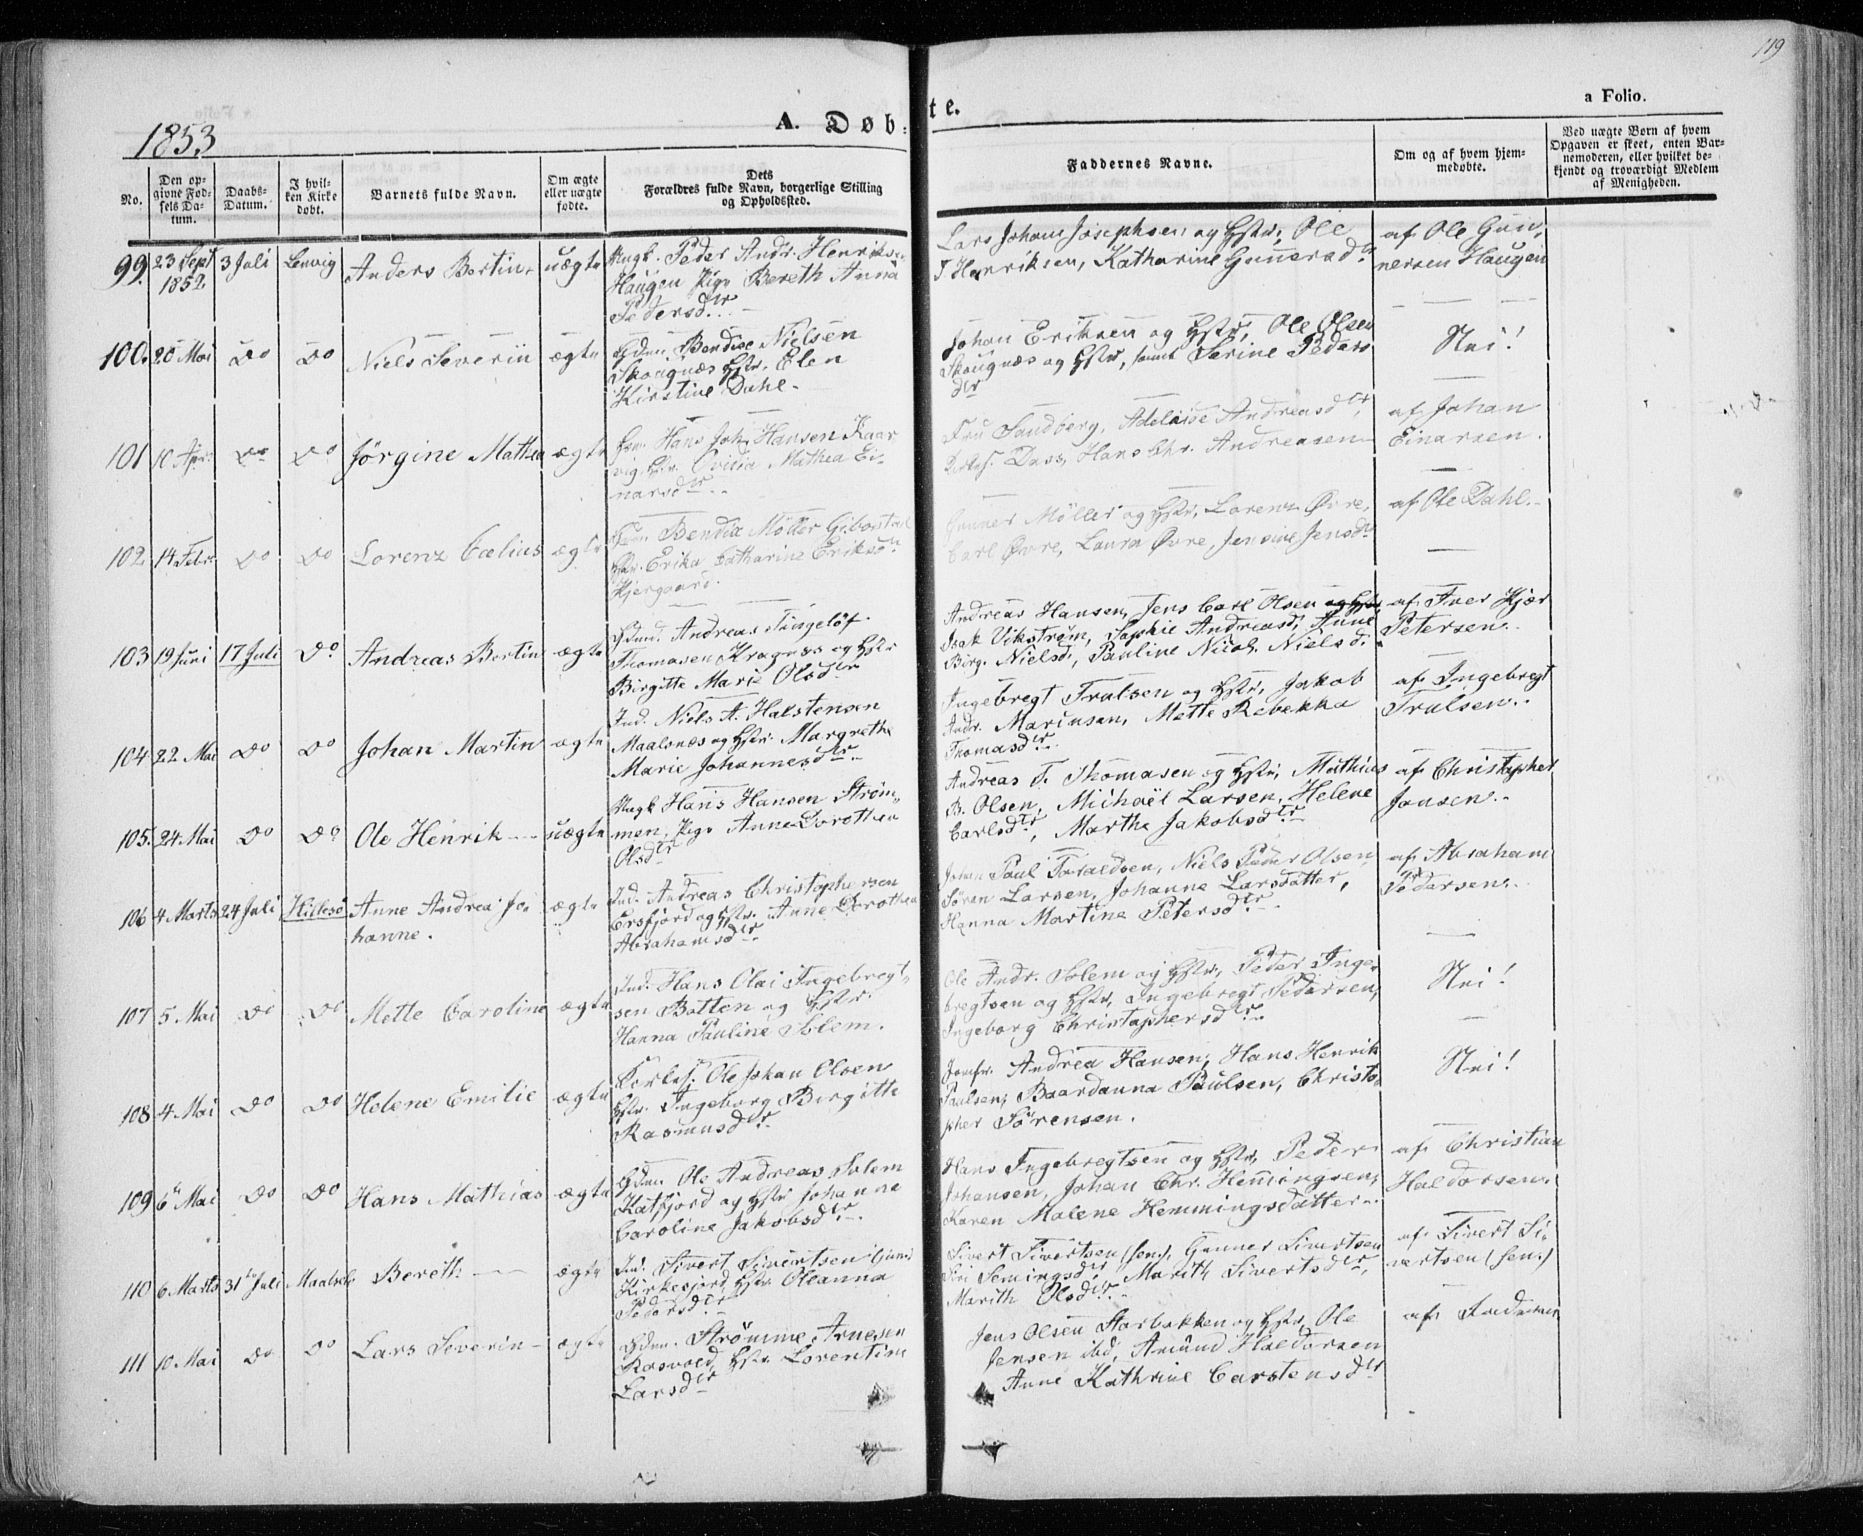 119
a Folio.
1853
A. Døb-
te.
No.
Den op-
givne Fød-
sels Da-
tum.
Daabs-
Datum.
I hvil-
ken Kirke
døbt.
Barnets fulde Navn.
Om ægte
eller uægte
fødte.
Dets
Forældres fulde Navn, borgerlige Stilling
og Opholdssted.
Faddernes Navne.
Om og af hvem hjem-
medøbte.
Ved uægte Børn af hvem
Opgaven er skeet, enten Bar-
nemoderen, eller hvilket be-
kjendt og troværdigt Medlem
af Menigheden.
99. 23 Sept 1852. 3 Juli Lenvig Anders Bertin. uægte
Ungk. Peder Andr. Henriks.
Haugen Pige Bereth Anna
Pedersdtr.
Lars Johan Josephsen og Hstr, Ole
J Henriksen, Katharine Gunersdtr
af Ole Gun-
nersen Haugen
100. 20 Mai Do Do Niels Severin ægte
Gdm. Bendix Nielsen
Skougnæs Hstr. Elen
Kirstine Dahl.
Johan Eriksen og Hstr, Ole Olsen
Skougnæs og Hstr, samt Serine Peders
dtr
Nei!
101 10 Apr. Do Do Jørgine Mathea ægte
Hans Joh. Hansen Kaar
vig Hstr. Mathea Ei-
narsdtr.
Fru Sandberg, Adelaise Andreasdtr,
Dass, Hans Chr. Andreasen
af Johan
Einarsen.
102. 14 Febr. Do Do Lorenz Cælius ægte
Bendix Møller Gibostad
Hstr. Erika Catharine Eriksdtr
Kjergaard.
Gunner Møller og Hstr, Lorenz Øvre,
Carl Øvre, Laura Øvre, Jensine Jensdtr
af Ole Dahl.
103 19 Juni 17 Juli Do Andreas Bertin ægte
Gdm. Andreas Tingelöf.
Thomasen Kragnæs og Hstr
Birgitte Marie Olsdtr
Andreas Hansen, Jens Carl Olsen og Hstr,
Isak Vikstrøm, Sophie Andreasd, Anne
Birg. Nielsd, Pauline Nicol. Nielsd.
af Iver Kjær
Petersen.
104 22 Mai Do Do Johan Martin ægte
Ind. Niels A. Halstensen
Maalsnæs og Hstr. Margrethe
Marie Johannesdtr.
Ingebregt Trulsen og Hstr, Jakob
Andr. Marinsen, Mette Rebekka
Thomasdtr.
af Ingebregt
Trulsen.
105. 24 Mai Do Do Ole Henrik uægte
Ungk Hans Hansen Strøm-
men, Pige Anne Dorothea
Olsdtr
Andreas T. Thomasen og Hstr, Mathias
B. Olsen, Michaël Larsen, Helene
Carlsdtr, Marthe Jakobsdtr
af Christopher
Jonsen.
106 4 Marts 24 Juli Hillesø Anne Andrea Jo-
hanne. ægte
Ind. Andreas Christophersen
Ersfjord og Hstr. Anne Dorothea
Abrahamsdtr.
Johan Paul Toraldsen, Niels Peder Olsen
Søren Larsen, Johanne Larsdatter,
Hanna Martine Petersdtr.
af Abraham
Pedersen.
107 5 Mai Do Do Mette Caroline ægte
Ind. Hans Olai Ingebregt-
sen Botten og Hstr.
Hanna Pauline Solem.
Ole Andr. Solem og Hstr, Peder Inge-
bregtsen og Hstr, Ingebregt Pedersen,
Ingeborg Christophersdtr.
Nei!
108 4 Mai Do Do Helene Emilie ægte
Ole Johan Olsen
Hstr. Ingeborg Birgitte
Rasmusdtr
Jomfr. Andrea Hansen, Hans Henrik
Paulsen, Baardanna Paulsen, Christo-
pher Sörensen.
Nei!
109 6 Mai Do Do Hans Mathias ægte
Gdm. Ole Andreas Solem
Katfjord og Hstr Johanne
Caroline Jakobsdtr.
Hans Ingebregtsen og Hstr, Peder
Johansen, Johan Chr. Hemmingsen,
Karen Malene Hemmingsdatter.
af Christian
Haldorsen.
110 6 Marts 31 Juli Maalselv Bereth ægte
Ind. Sivert Sivertsen (jun.)
Kirkesjord Hstr. Oleanna
Pedersdtr
Sivert Sivertsen (sen.), Gunner Sivertsen
Siri Semingsdtr, Marith Sivertsdtr,
Marith Olsdtr.
af Sivert Si-
vertsen (sen.)
111 10 Mai Do Do Lars Severin ægte
Gdm. Strømme Arnesen
Rosvold, Hstr Lorentine
Larsdtr
Jens Olsen Storbakken og Hstr, Ole
Jensen ibd, Amund Haldorsen
Anne Kathrine Carstensdtr
af Faderen